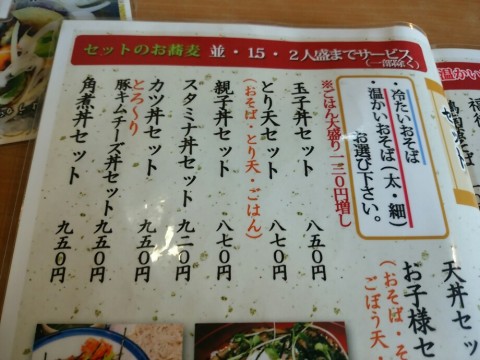 セットのお蕎麦 並・15・2人盛までサービス
(一部除く)
・冷たいおそば
・温かいおそば(太・細)
お選び下さい。
※ごはん大盛り一三〇円増し
玉子丼セット 八五〇円
とり天セット 八七〇円
(おそば・とり天・ごはん)
親子丼セット 八七〇円
スタミナ丼セット 九二〇円
カツ丼セット 九五〇円
とろ〜り
豚キムチーズ丼セット 九五〇円
角煮丼セット 九五〇円
温かい
天丼セ
お子様セ
(おそば・そ
ごぼう天・